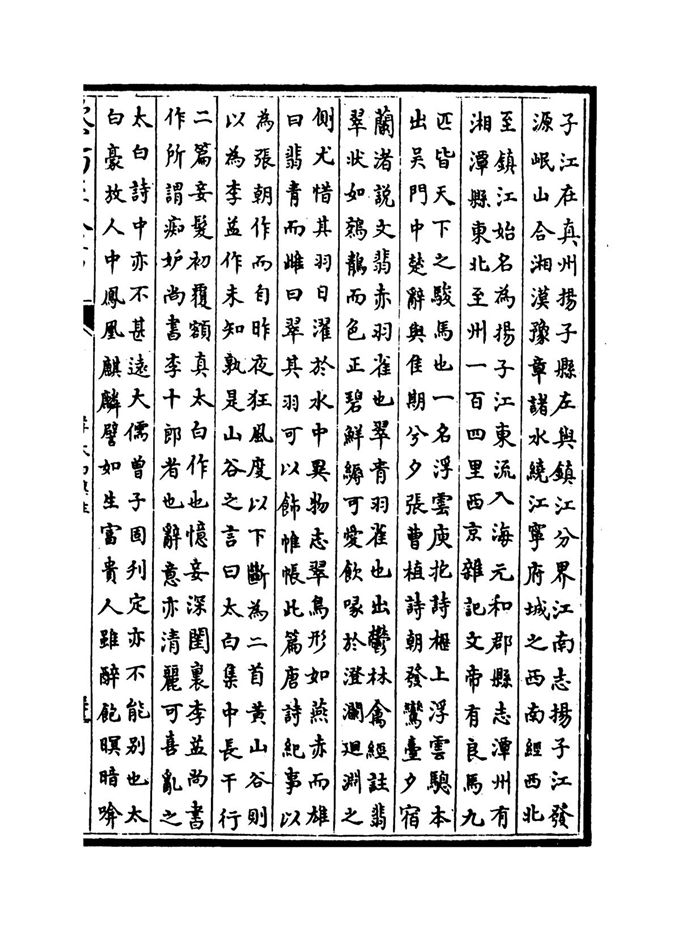 子江在真州揚子縣左與鎮江分界江南志揚子江發
源岷山合湘漢豫章諸水繞江寧府城之西南經西北
至鎮江始名為揚子江東流入海元和郡縣志潭州有
湘潭縣東北至州一百四里西京雜記文帝有良馬九
匹皆天下之駿馬也一名浮雲庾抱詩櫪上浮雲驄本
出吳門中楚辭與佳期兮夕張曹植詩朝發鸞臺夕宿
蘭渚說文翡赤羽雀也翠青羽雀也出鬱林禽經註翡
翠狀如鵁鶄而色正碧鮮縟可愛飲啄於澄瀾迴淵之
側尤惜其羽日濯於水中異物志翠鳥形如燕赤而雄
曰翡青而雌曰翠其羽可以飾帷帳此篇唐詩紀事以
為張朝作而自昨夜狂風度以下斷為二首黃山谷則
以為李益作未知孰是山谷之言曰太白集中長干行
二篇妾髮初覆額真太白作也憶妾深閨裏李益尚書
作所謂癡妒尚書李十郎者也辭意亦清麗可喜亂之
太白詩中亦不甚遠大儒曾子固刊定亦不能別也太
白豪放人中鳳凰麒麟譬如生富貴人雖醉飽暝暗啽